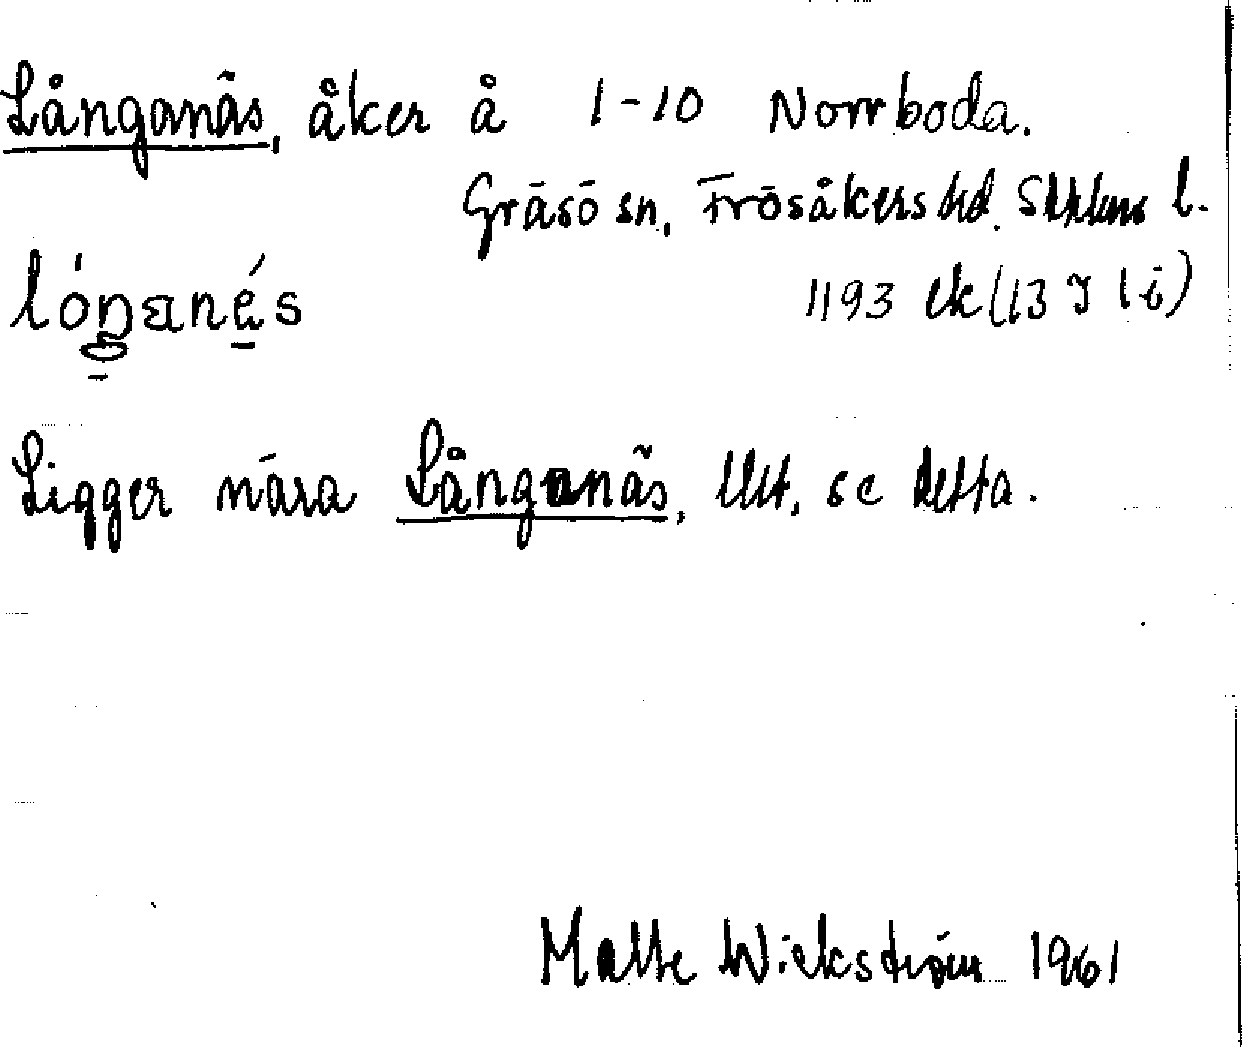 Långanäs, åker å 1-10 Norrboda.
Gräsö sn, Frösåkers hd. Sthlms l.
lóŋanés 1193 ek (13 I 1 i)
Ligger nära Långanäs, Udd, se detta.
Malte Wickström 1961